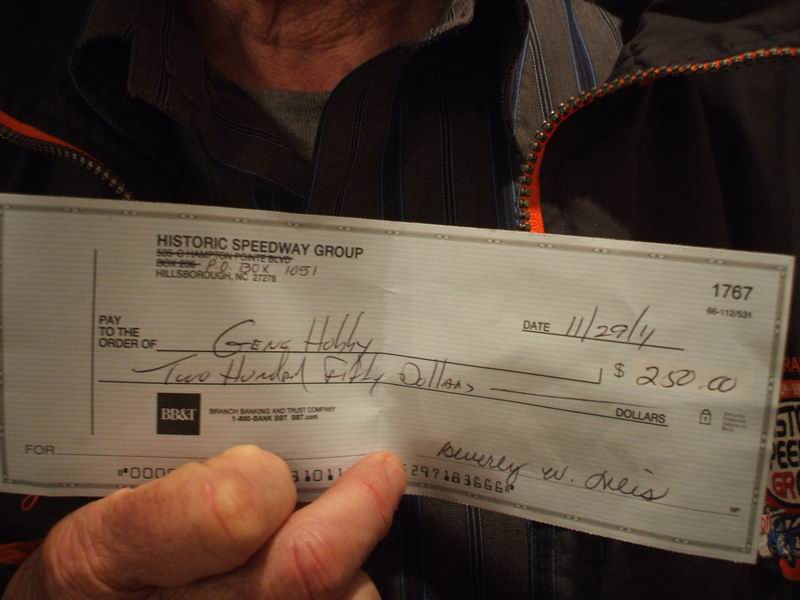 HISTORIC SPEEDWAY GROUP
535-C HAMPTON POINTE BLVD
BOX 206 P.O. BOX 1051
HILLSBOROUGH, NC 27278
1767
66-112/531
DATE 11/29/11
PAY
TO THE
ORDER OF Gene Hobby
$ 250.00
Two Hundred Fifty Dollars
DOLLARS
BB&T
BRANCH BANKING AND TRUST COMPANY
1-800-BANK BBT BBT.com
FOR
Beverly W.